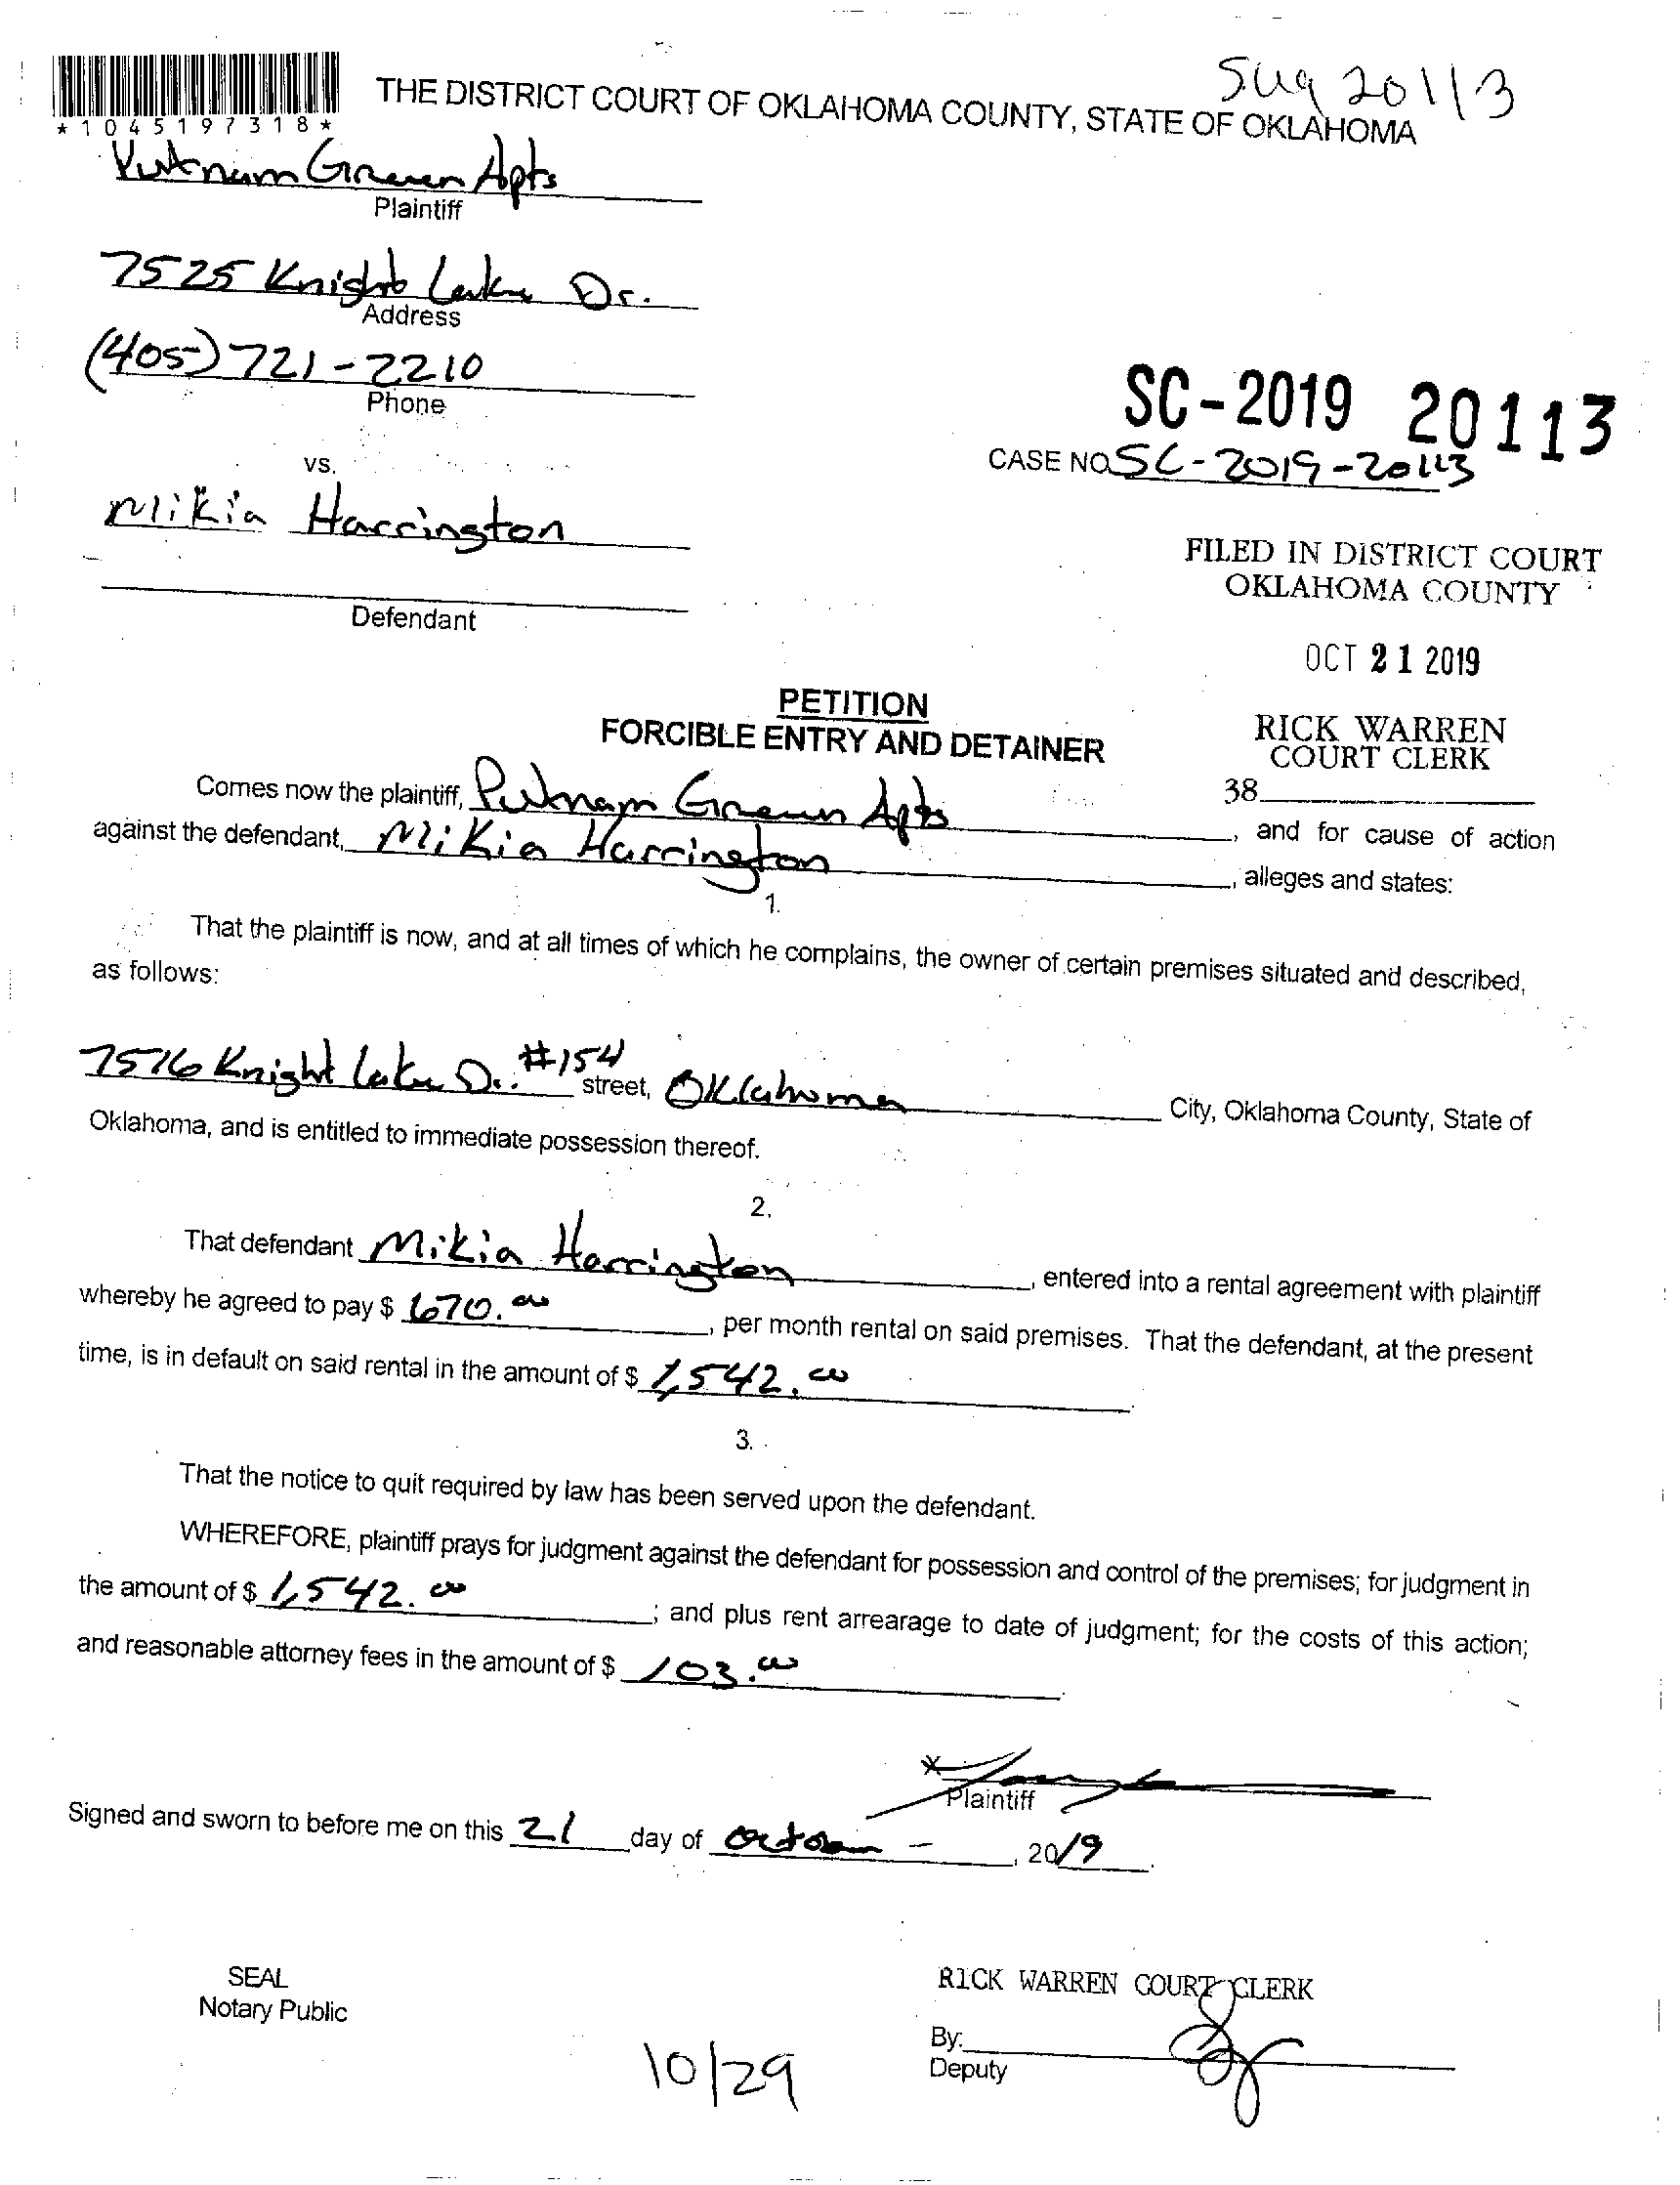 Sug 20113
THE DISTRICT COURT OF OKLAHOMA COUNTY, STATE OF OKLAHOMA
*1045197318*
Putnam Green Apts
Plaintiff
7525 Knight Lake Dr.
Address
(405) 721-2210
Phone
SC-2019 20113
CASE NO. SC-2019-20113
vs.
Mikia Harrington
FILED IN DISTRICT COURT
OKLAHOMA COUNTY
Defendant
OCT 21 2019
PETITION
FORCIBLE ENTRY AND DETAINER
RICK WARREN
COURT CLERK
38
Comes now the plaintiff, Putnam Green Apts, and for cause of action
against the defendant, Mikia Harrington, alleges and states:
1.
That the plaintiff is now, and at all times of which he complains, the owner of certain premises situated and described,
as follows:
7516 Knight Lake Dr. #154 street, Oklahoma City, Oklahoma County, State of
Oklahoma, and is entitled to immediate possession thereof.
2.
That defendant Mikia Harrington, entered into a rental agreement with plaintiff
whereby he agreed to pay $ 670.00, per month rental on said premises. That the defendant, at the present
time, is in default on said rental in the amount of $ 1,542.00.
3.
That the notice to quit required by law has been served upon the defendant.
WHEREFORE, plaintiff prays for judgment against the defendant for possession and control of the premises; for judgment in
the amount of $ 1,542.00; and plus rent arrearage to date of judgment; for the costs of this action;
and reasonable attorney fees in the amount of $ 103.00.
*
Plaintiff
Signed and sworn to before me on this 21 day of October, 2019.
SEAL
Notary Public
RICK WARREN COURT CLERK
By:
Deputy
10/29